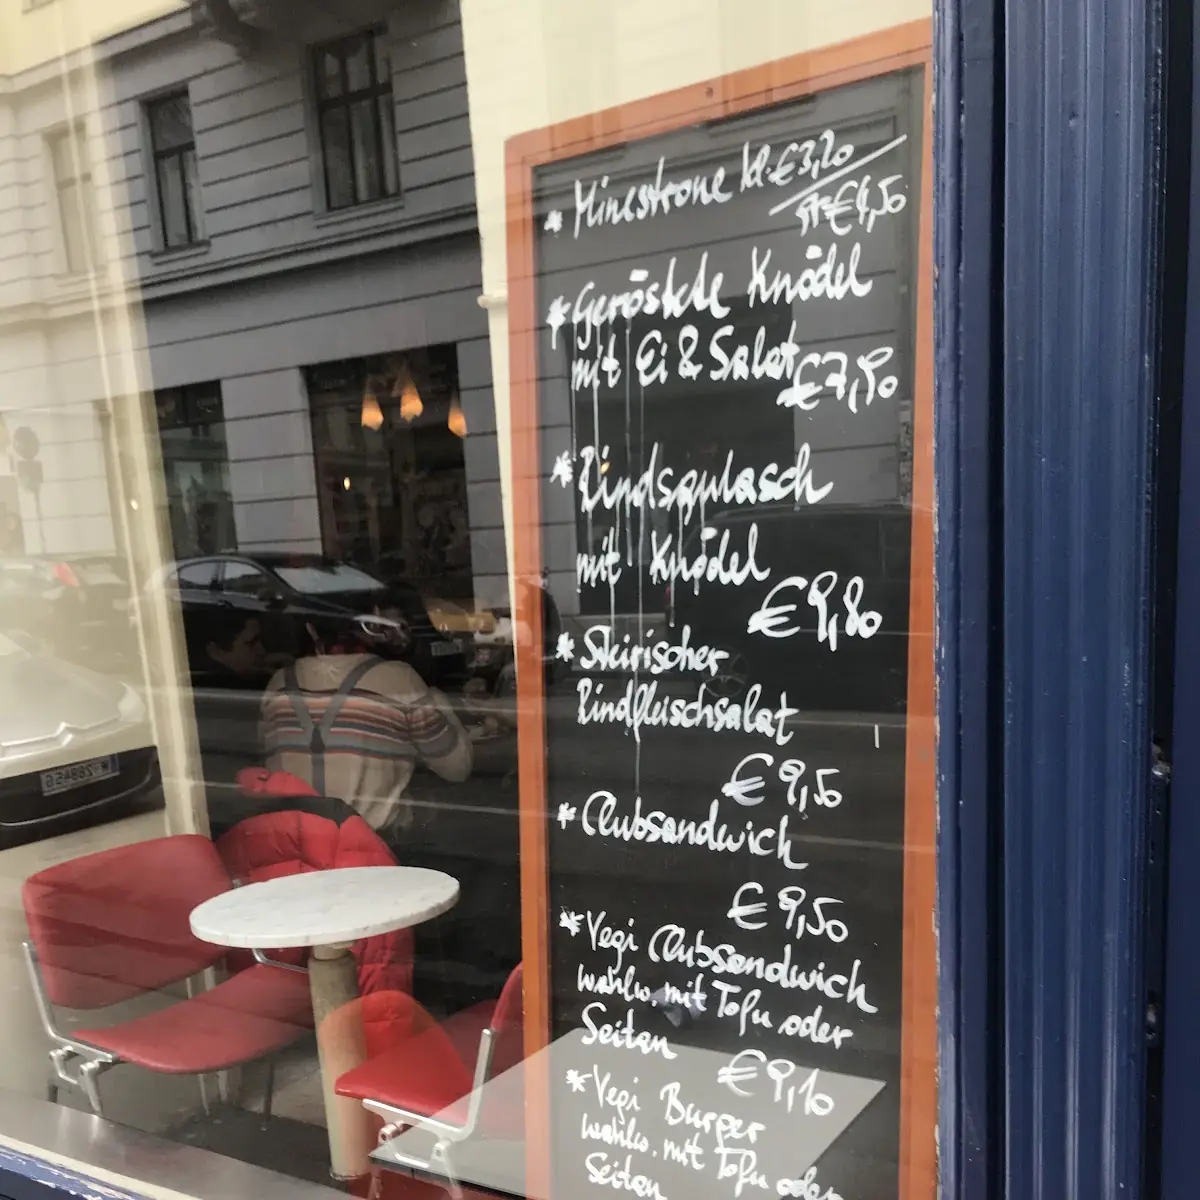 * Minestrone kl. €3,20
gr. €4,50
* Geröstete Knödel
mit Ei & Salat
€7,90
* Rindsgulasch
mit Knödel
€9,80
* Steirischer
Rindfleischsalat
€9,50
* Clubsandwich
€9,50
* Vegi Clubsandwich
wahlw. mit Tofu oder
Seitan
€9,10
* Vegi Burger
wahlw. mit Tofu oder
Seitan